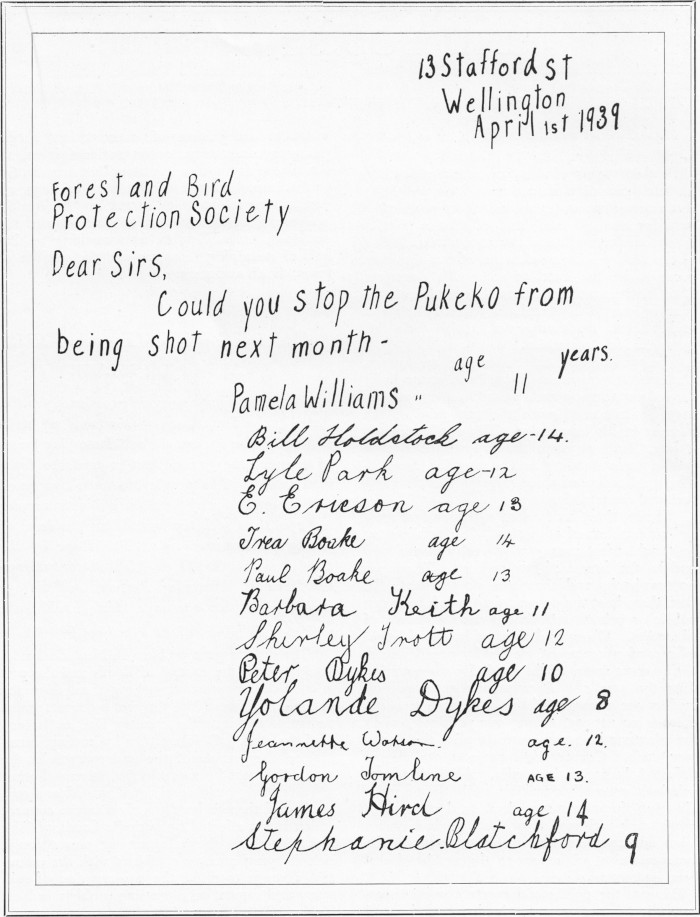 13 Stafford St
Wellington
April 1st 1939
Forest and Bird
Protection Society
Dear Sirs,
Could you stop the Pukeko from
being shot next month-
age years.
Pamela Williams " 11
Bill Holdstock age-14.
Lyle Park age-12
E. Ericson age 13
Trea Boake age 14
Paul Boake age 13
Barbara Keith age 11
Shirley Trott age 12
Peter Dykes age 10
Yolande Dykes age 8
Jeannette Watson. age. 12.
Gordon Tomline AGE 13.
James Hird age 14
Stephanie. Blatchford 9